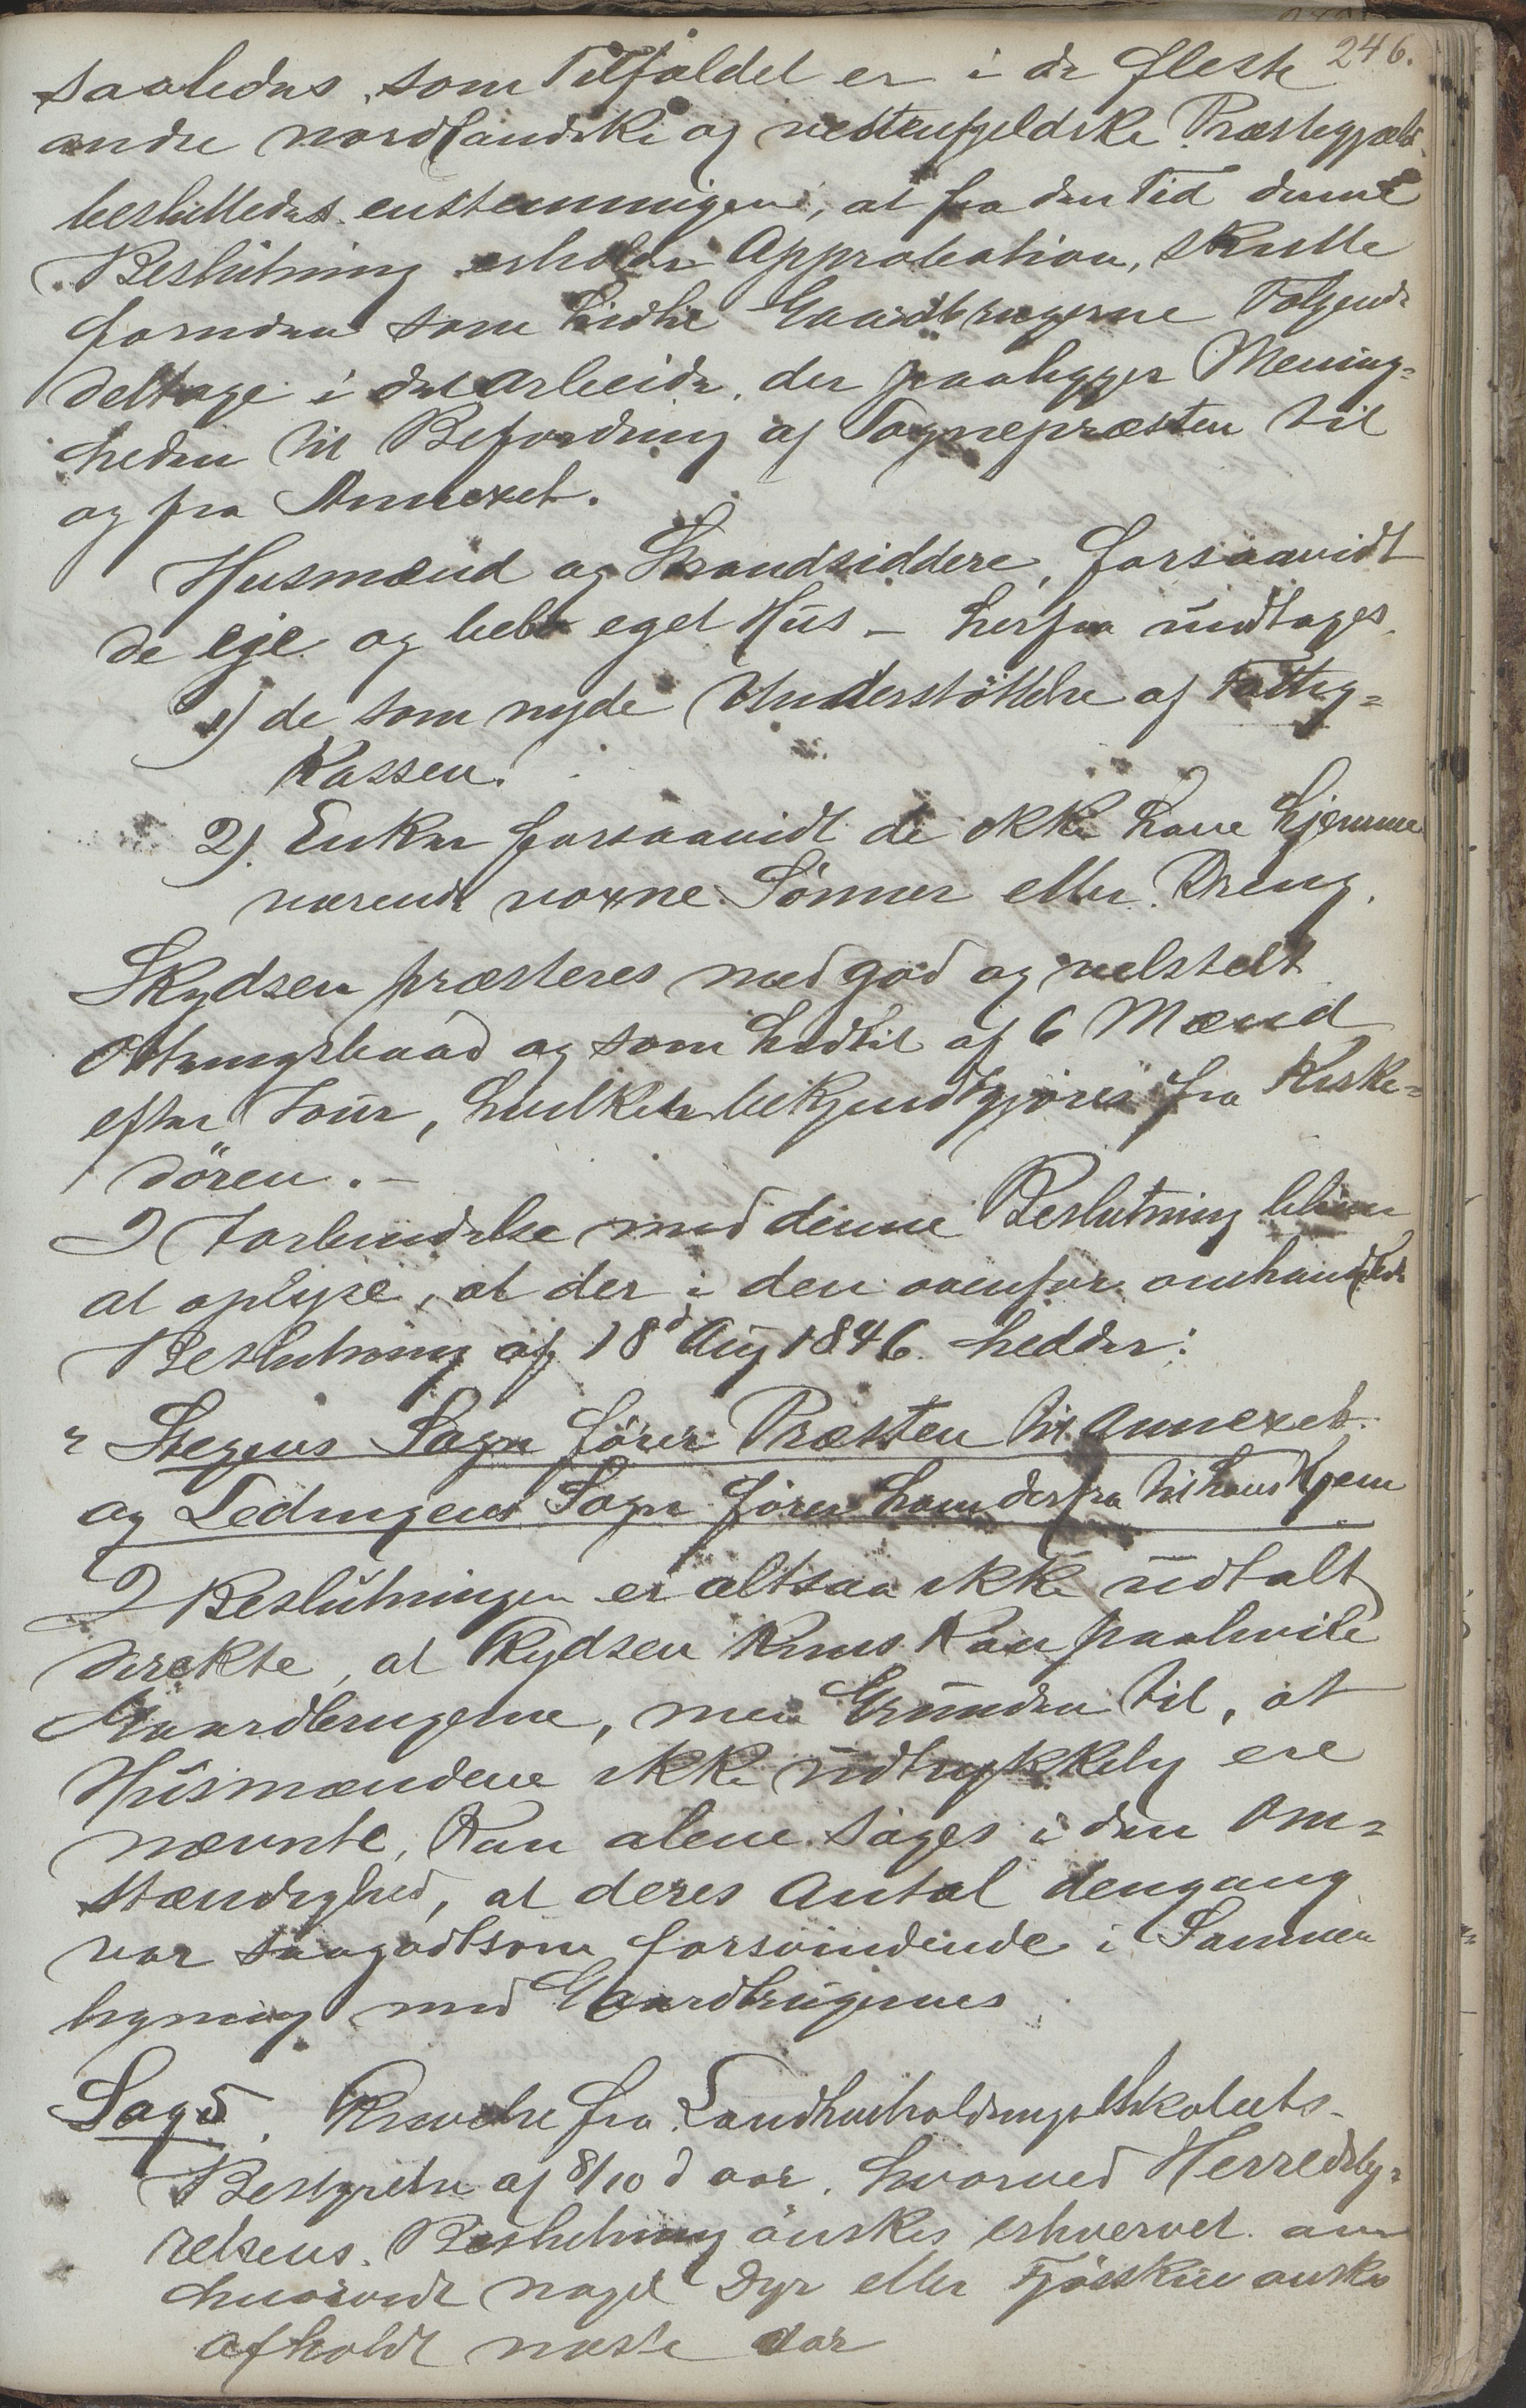 246.
saaledes som Tilfældet er i de fleste
andre nordlandske og vestenfjeldske Præstegjæld
besluttedes enstemmigen, at fra den Tid denne
Beslutning erholder Approbation, skulle
foruden som hidtil Gaardbrugerne Følgende
deltage i det Arbeide, der paaligger Menig=
heden til Befordring af Sognepræsten til
og fra Annexet.
Husmænd og Strandsiddere, forsaavidt
de eje og bebo eget Hus – herfra undtages
1) de som nyde Understöttelse af Fattig=
Kassen.
2). Enker forsaavidt de ikke have hjemme
værende voxne Sönner eller Dreng.
Skydsen præsteres med god og velstelt
Ottringsbaad og som hidtil af 6 Mænd
efter Tour, hvilken bekjendtgjöres fra Kirke=
dören. –
I Forbindelse med denne Beslutning bliver
at oplyse, at der i den ovenfor omhandlede
Beslutning af 18d Aug 1846 hedder:
" Stegens Sogn förer Præsten til Annexet
og Ledingens Sogn förer ham derfra til hans Hjem
I Beslutningen er altsaa ikke udtalt
direkte, at Skydsen kuns kan paahvile
Gaardbrugerne, men Grunden til, at
Husmændene ikke udtrykkelig ere
nævnte, kan alene söges i den Om=
stændighed, at deres Antal dengang
var saagodtsom forsvindende i Sammen
ligning med Gaardbrugernes
Sag 5. Skrivelse fra Landhusholdningsselskabets
Bestyrelse af 8/10 d aar, hvorved Herredsty=
relsens Beslutning önskes erhvervet om
hvorvidt noget Dyr eller Fjösskue önskes
afholdt næste Aar